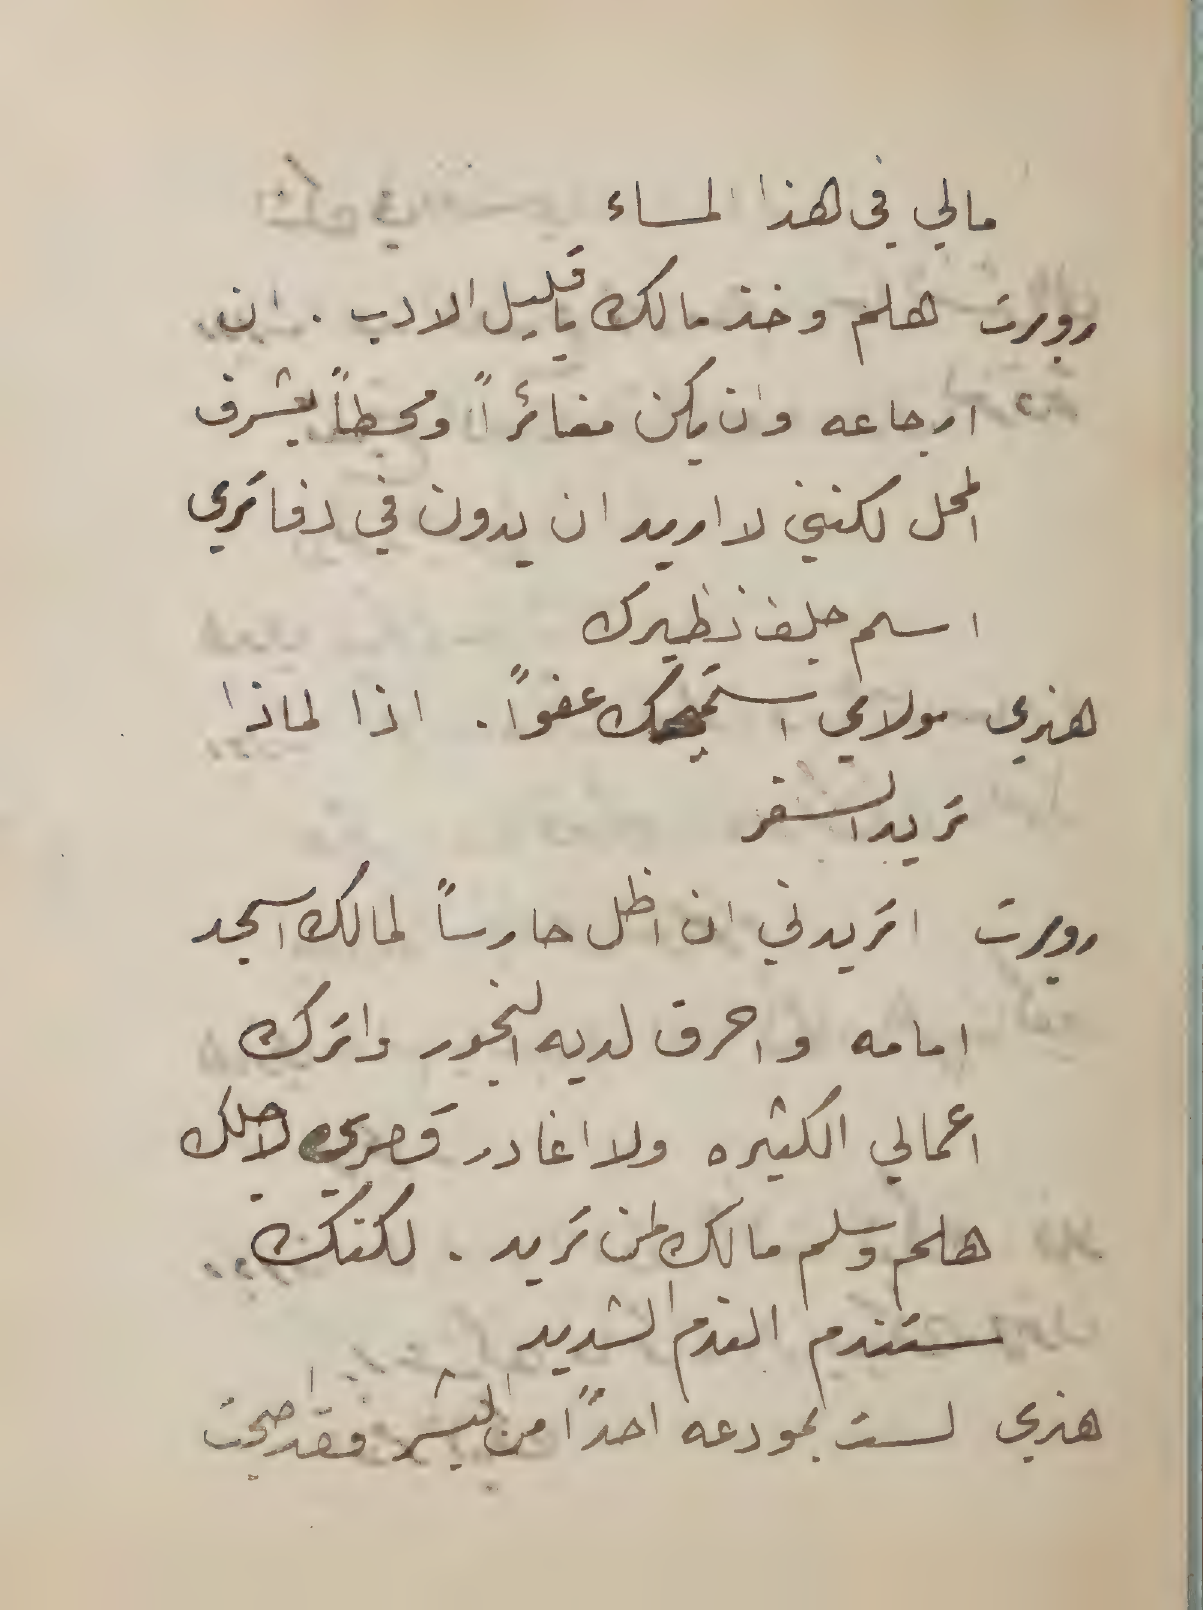 مالي في هذا المساء
روبرت هلم وخذ مالك يا قليل الادب . ان
ارجاعه وان يكن مغائراً ومحطاً بشرف
المحل لكنني لا اريد ان يدون في دفاتري
اسم جلف نظيرك
هنري مولاي استميحك عفواً . اذا لماذا
تريد السفر
روبرت اتريدني ان اظل حارساً لمالك اسجد
امامه واحرق لديه البخور واترك
اعمالي الكثيره ولا اغادر قصري لاجلك
هلم وسلم مالك لمن تريد . لكنك
ستندم الندم الشديد
هنري لست بمودعه احدًا من البشر فقد اصبحت